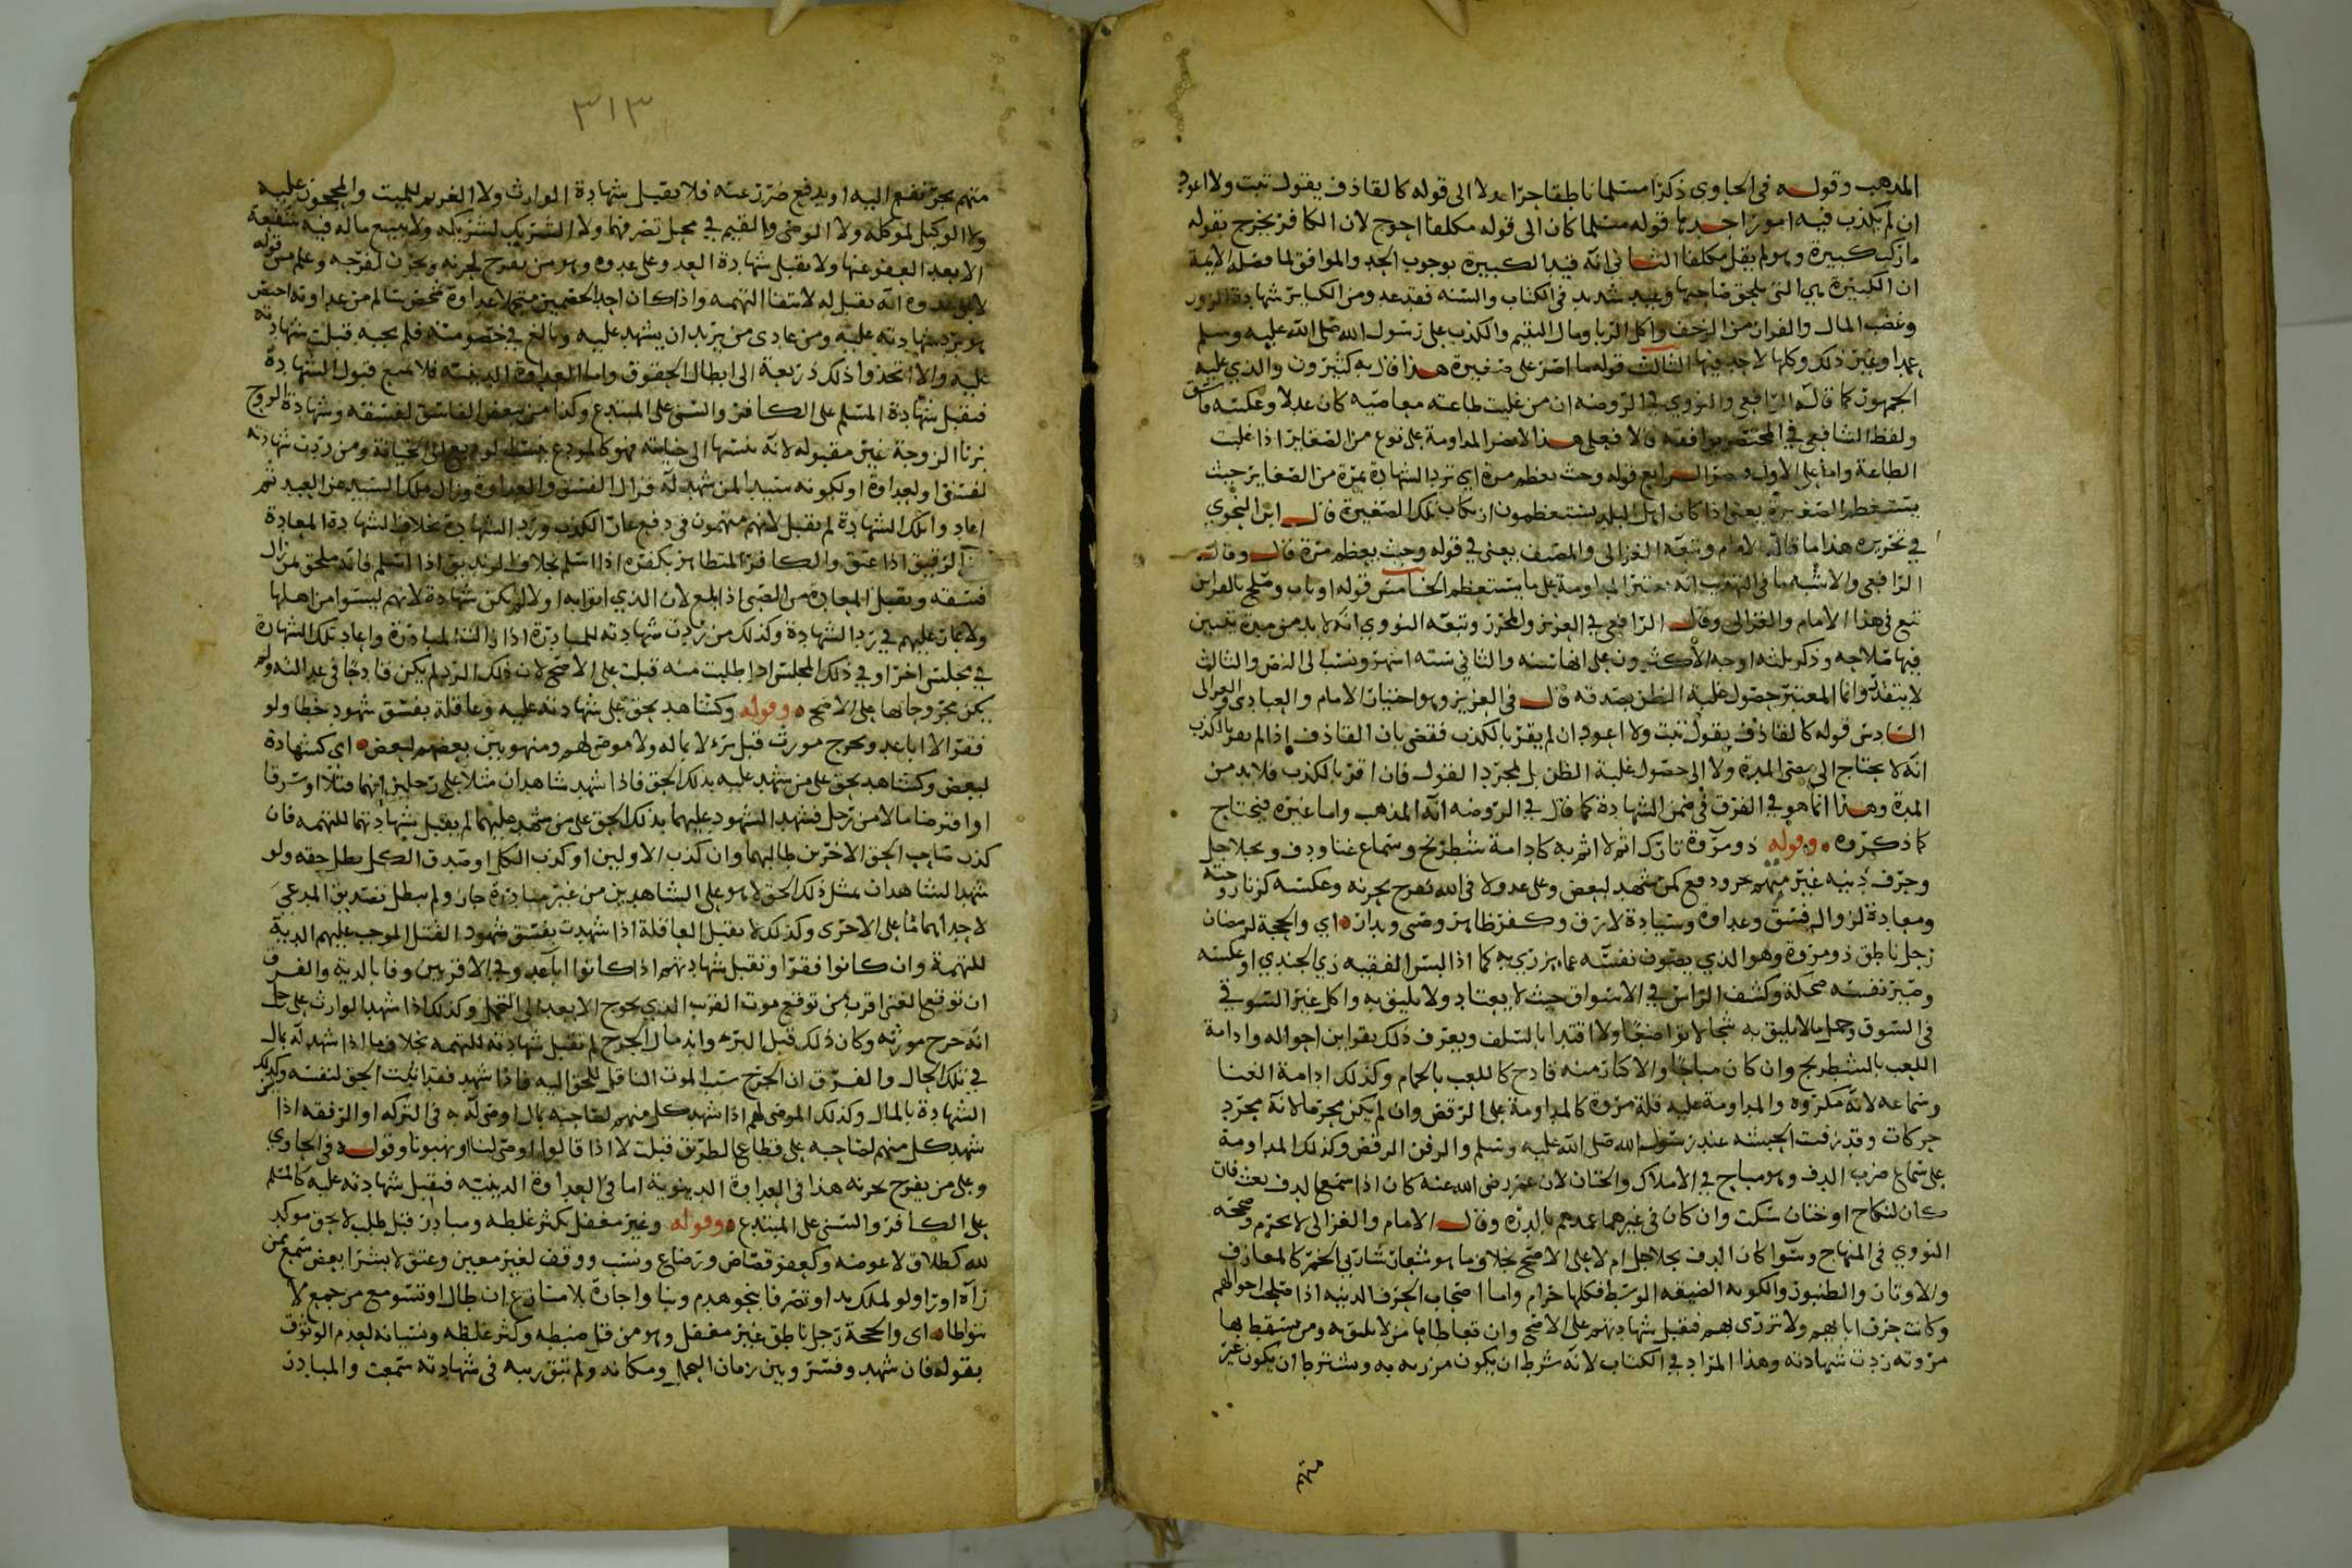 المذهب وقوله في الحاوي ذكرا مسلما ناطقا حرا عدلا الى قوله كالقاذف يقول تبت ولا اعود
ان لم يكذب فيه امور احدها قوله مسلما كان الى قوله مكلفا احوج لان الكافر يخرج بقوله
ما ركب كبيرة وهو لم يقل مكلفا الثاني انه قيد الكبيرة بوجوب الحد والموافق لما فصله الائمة
ان الكبيرة هي التي يلحق صاحبها وعيد شديد في الكتاب والسنه فقد عد ومن الكبائر شهادة الزور
وغصب المال والفرار من الزحف واكل الربا ومال اليتيم والكذب على رسول الله صلى الله عليه وسلم
عمدا وغير ذلك وكلها لا حد فيها الثالث قوله ما اصر على صغيرة هذا قال به كثيرون والذي عليه
الجمهور كما قاله الرافعي والنووي في الروضه ان من غلبت طاعته معاصيه كان عدلا وعكسه فاسق
ولفظ الشافعي في المختصر يوافقه فعلى هذا لا تضر المداومة على نوع من الصغاير اذا غلبت
الطاعة واما على الاول الرابع قوله وحيث يعظم مرة اي ترد الشهادة بمرة من الصغاير حيث
يستعظم الصغيرة يعني اذا كان اهل البلد يستعظمون ارتكاب تلك الصغيرة قال ابن النحوي
في تحريره هذا ما قاله الامام وتبعه الغزالي والمصنف يعني في قوله وحيث يعظم مرة قال وقال
الرافعي والاشبه ما في التهذيب انه تعتبر المداومة على ما يستعظم الخامس قوله او تاب وصلح بالقراين
تبع في هذا الامام والغزالي وقال الرافعي في العزيز والمحرر وتبعه النووي انه لا بد من مدة يتبين
فيها صلاحه وذكر ثلثه اوجه الاكثرون على انها سنه والثاني ستة اشهر ونسب الى النص والثالث
لا يتقدر وانما المعتبر حصول غلبة الظن بصدقه قال في العزيز وهو اختيار الامام والعبادي والغزالي
السادس قوله كالقاذف يقول تبت ولا اعود ان لم يقر بالكذب فقضى بان القاذف اذا لم يقر بالكذب
انه لا يحتاج الى مضي المدة ولا الى حصول غلبة الظن بل لمجرد القول فان اقر بالكذب فلا بد من
المدة وهذا انما هو في القذف في ضمن الشهادة كما قال في الروضه انه المذهب واما غيره فيحتاج
كما ذكروه وقوله ذو مروة تارك اثم لا اثر به كادامة شطرنج وسماع غنا ودف وبجلاجل
وحرف دنيه غير متهم بجر ودفع كمن شهد لبعض وعلى عدو لا في الله يفرح بحزنه وعكسه كزنا زوجته
ومعادة لزوال فسق وعداوة وسيادة لا رق وكفر ظاهر وصبى وبدار اي والحجة لرمضان
رجل ناطق ذو مروة وهو الذي يصون نفسه عما يزري به كما اذا لبس الفقيه زي الجندي او عكسه
وصير نفسه ضحكة وكشف الراس في الاسواق حيث لا يعتاد ولا يليق به واكل غير السوقي
في السوق وحمل ما لا يليق به شحا لا تواضعا ولا اقتدا بالسلف ويعرف ذلك بقراين احواله وادامة
اللعب بالشطرنج وان كان مباحا والاكثار منه قادح كاللعب بالحمام وكذلك ادامة الغنا
وسماعه لانه مكروه والمداومة عليه قلة مروة كالمداومة على الرقص وان لم يكن محرما لانه مجرد
حركات وقد زفنت الحبشه عند رسول الله صلى الله عليه وسلم والزفن الرقص وكذلك المداومة
على سماع ضرب الدف وهو مباح في الاملاك والختان لان عمر رضي الله عنه كان اذا سمع الدف بعث فان
كان لنكاح او ختان سكت وان كان في غيرهما عمدهم بالدره وقال الامام والغزالي لا يحرم وصححه
النووي في المنهاج وسوا كان الدف بجلاجل ام لا على الاصح بخلاف ما هو شعار شاربي الخمر كالمعازف
والاوتار والطنبور والكوبه الضيقه الوسط فكلها حرام واما اصحاب الحرف الدنيه اذا صلحت احوالهم
وكانت حرف ابايهم ولا تزرى بهم فتقبل شهادتهم على الاصح وان تعاطاها من لا يليق به ومن سقط بها
مروته ردت شهادته وهذا المراد في الكتاب لانه شرط ان يكون مزريه به ويشترط ان يكون غير
متهم
٣١٣
متهم بجر نفع اليه او يدفع ضرر عنه فلا يقبل شهادة الوارث ولا الغريم للميت والمحجور عليه
ولا الوكيل لموكله ولا الوصي والقيم في محل تصرفهما ولا الشريك لشريكه ولا يبيع ماله فيه شفعة
الا بعد العفو عنها ولا يقبل شهادة العدو على عدوه وهو من يفرح لحزنه ويحزن لفرحه وعلم من قوله
لا على عدوه انه يقبل له لانتفا التهمه واذا كان احد الخصمين متحملا عداوة شخص سالم من عداوته اختص
هو برد شهادته عليه ومن عادى من يريد ان يشهد عليه وبالغ في خصومته فلم يجبه قبلت شهادته
عليه والا اتخذوا ذلك ذريعة الى ابطال الحقوق واما العداوة الدينيه فلا تمنع قبول الشهادة
فتقبل شهادة المسلم على الكافر والسني على المبتدع وكذا من يبغض الفاسق لفسقه وشهادة الزوج
بزنا الزوجة غير مقبوله لانه نسبها الى خيانته فهو كالمودع الخيانة ومن ردت شهادته
لفسق او لعداوة او لكونه سيدا لمن شهد له فزال الفسق والعداوة وزال ملك السيد عن العبد ثم
اعادوا تلك الشهادة لم يقبل لانهم متهمون في دفع عار الكذب ورد الشهادة بخلاف الشهادة المعادة
من الرقيق اذا عتق والكافر المتظاهر بكفره اذا اسلم بخلاف الزنديق اذا اسلم فانه ملحق بمن زال
فسقه وتقبل المعادة من الصبي اذا بلغ لان الذي اتوا به اولا لم يكن شهادة لانهم ليسوا من اهلها
ولا عار عليهم في رد الشهادة وكذلك من ردت شهادته للمبادرة اذا زالت المبادرة واعاد تلك الشهادة
في مجلس اخر او في ذلك المجلس اذا طلبت منه قبلت على الاصح لان ذلك الرد لم يكن قادحا في عدالته ولم
يكن مجروحا بها على الاصح وقوله وكشاهد بحق على شهادته عليه وعاقلة بفسق شهود خطا ولو
فقرا لا اباعد وبجرح مورث قبل برء لا بماله ولا موصى لهم ومنهوبين بعضهم لبعض اي كشهادة
لبعض وكشاهد بحق على من شهد عليه بذلك الحق فاذا شهد شاهدان مثلا على رجلين انهما قتلا او سرقا
او اقترضا مالا من رجل فشهد المشهود عليهما بذلك الحق على من شهد عليهما لم يقبل شهادتهما للتهمه فان
كذب صاحب الحق الاخرين طالبهما وان كذب الاولين او كذب الكل او صدق الكل بطل حقه ولو
شهد الشاهدان بمثل ذلك الحق لا هو على الشاهدين من غير مبادرة جاز ولم يبطل تصديق المدعى
لاحداهما على الاخرى وكذلك لا تقبل العاقلة اذا شهدت بفسق شهود القتل الموجب عليهم الدية
للتهمة وان كانوا فقرا وتقبل شهادتهم اذا كانوا اباعد وفي الاقربين وفا بالدية والفرق
ان توقع الغنى اقرب من توقع موت القريب الذي يحوج الابعد الى التحمل وكذلك اذا شهد الوارث على رجل
انه جرح مورثه وكان ذلك قبل البرء واندمال الجرح لم تقبل شهادته للتهمه بخلاف ما اذا شهد له بمال
في تلك الحال والفرق ان الجرح سبب الموت الناقل للحق اليه فاذا شهد فقد اثبت الحق لنفسه وكذلك
الشهادة بالمال وكذلك الموصى لهم اذا شهد كل منهم لصاحبه بمال اوصى له به في التركه او الرفقه اذا
شهد كل منهم لصاحبه على قطاع الطريق قبلت لا اذا قالوا اوصى لنا او نهبونا وقوله في الحاوي
وعلى من يفرح بحزنه هذا في العداوة الدنيوية اما في العداوة الدينيه فيقبل شهادته عليه كالمسلم
على الكافر والسني على المبتدع وقوله وغير مغفل يكثر غلطه ومبادر قبل طلب لا بحق موكد
لله كطلاق لا عوضه وكعفو قصاص ورضاع ونسب ووقف لغير معين وعتق لا بشرا بعض سمع من
رآه اورا ولو لملك يد او تصرفا بنحو هدم وبنا واجارة بلا منازع ان طال او تسومع من جمع لا
تواطا اي والحجة رجل ناطق غير مغفل وهو من قل ضبطه وكثر غلطه ونسيانه لعدم الوثوق
بقوله فان شهد وفسر وبين زمان التحمل ومكانه ولم تبق ريبه في شهادته سمعت والمبادر